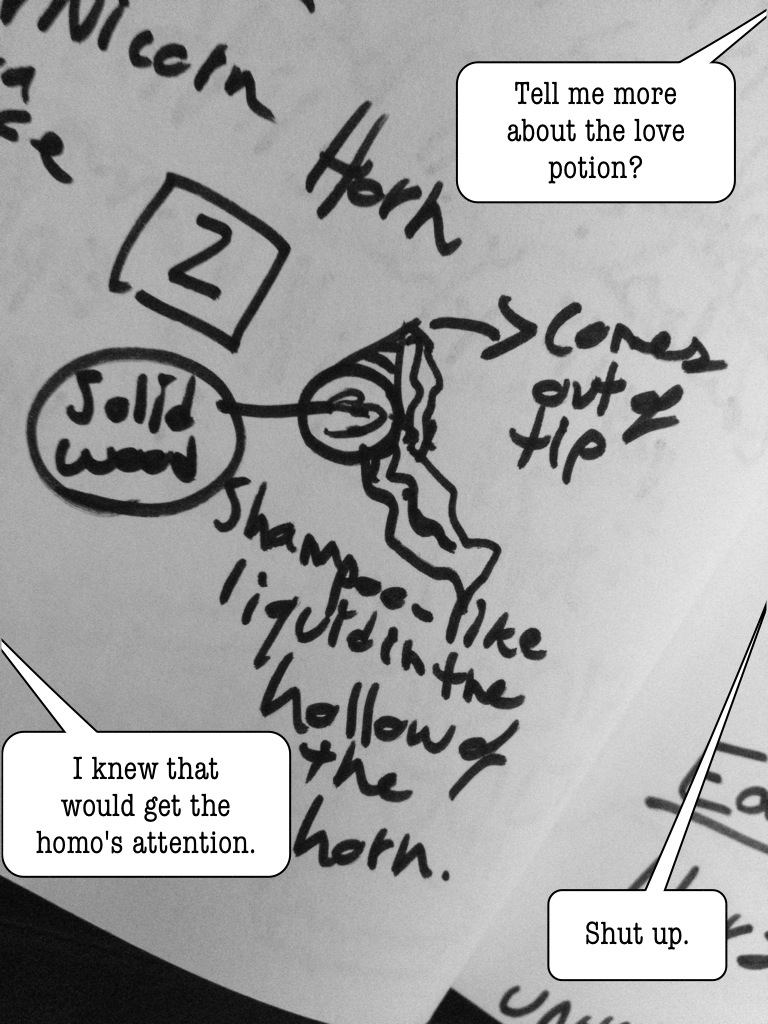 Nicorn
Horn
Tell me more
about the love
potion?
2
Solid
wood
Comes
out of
tip
Shampoo-like
liquid in the
hollow of
the
horn.
I knew that
would get the
homo's attention.
Shut up.